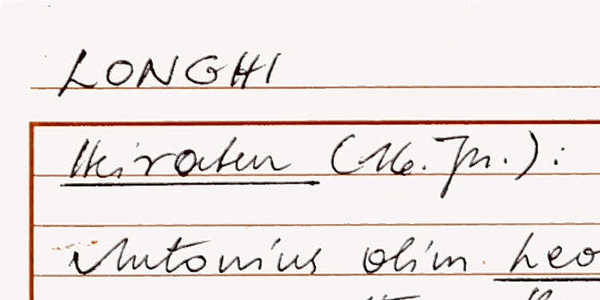 LONGHI
Heiraten (16. Jh.):
Antonius olim Leo